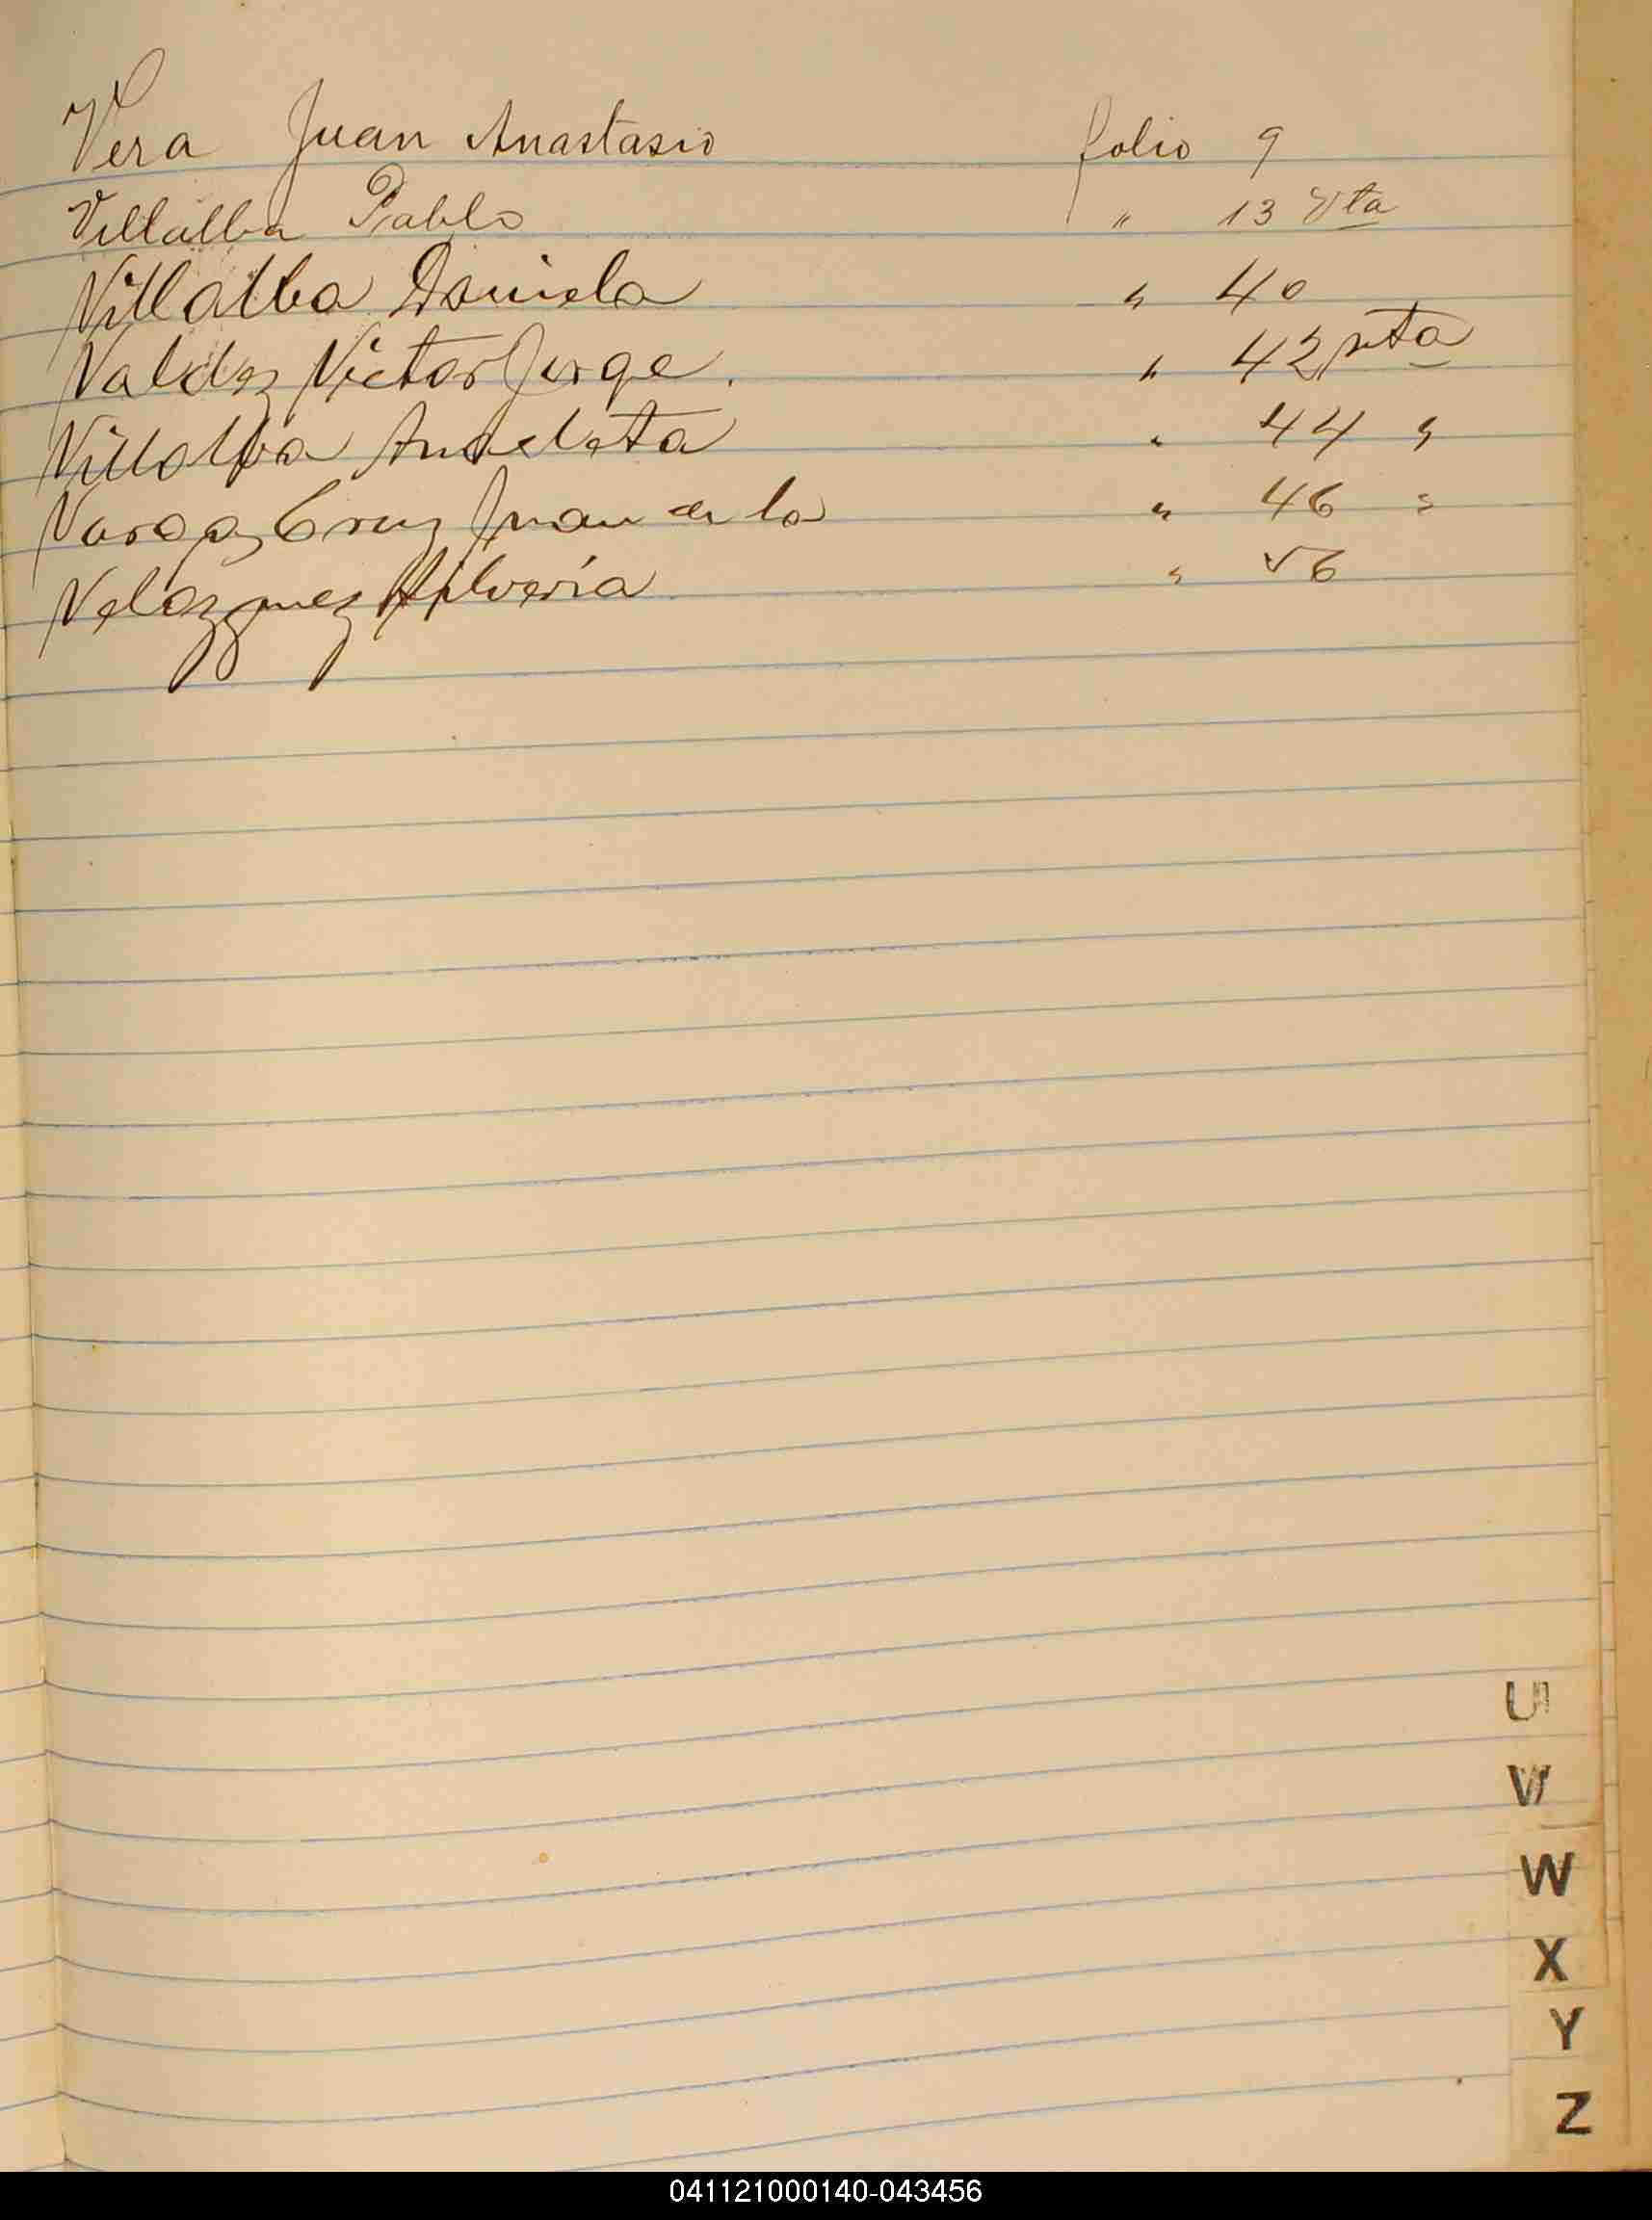 Vera Juan Anastasio folio 9
Villalba Pablo " 13 Vta
Villalba Daniela " 40
Valdez Victor Jorge. " 42 vta
Villalba Anacleta " 44 "
Vargaz Cruz Juan de la " 46 "
Velazquez " 56
U
V
W
X
Y
Z
041121000140-043456